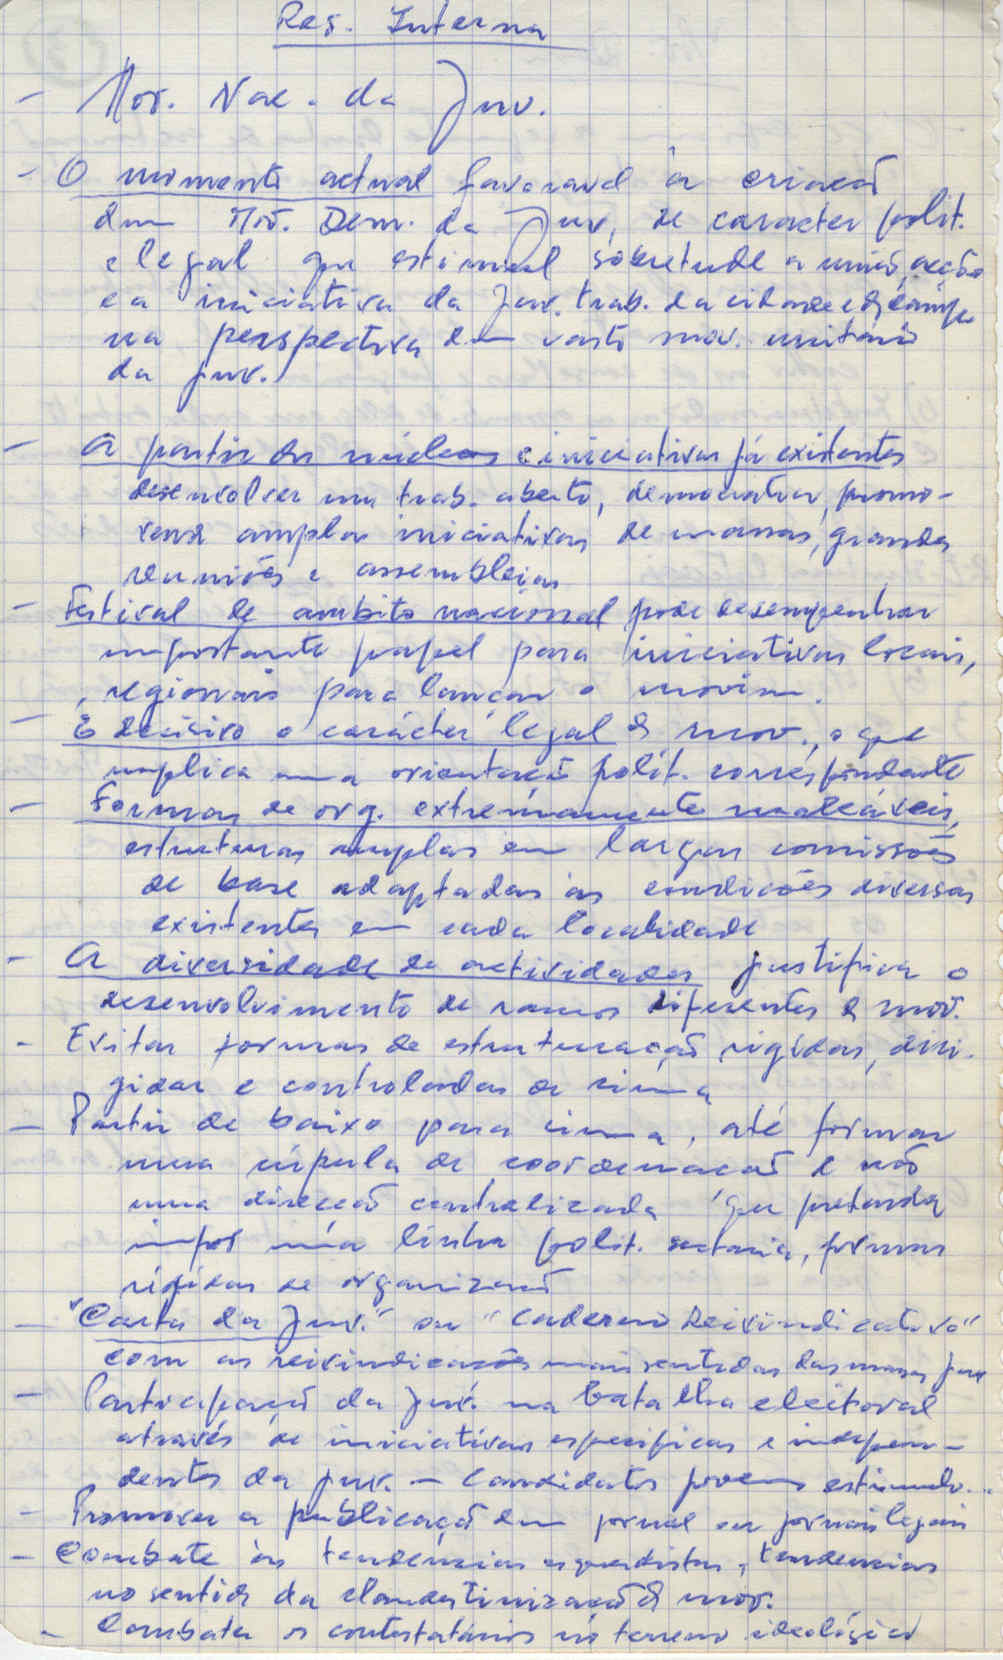 Res. Interna
- Mov. Nac. da Juv.
- O momento actual favoravel à criação
dum Mov. Dem. da Juv. de caracter polit.
e legal que estimule sobretudo a união, acção
e a iniciativa da Juv. trab. da cidade e do campo
na perspectiva dum vasto mov. unitário
da juv.
- A partir dos núcleos e iniciativas já existentes
desenvolver um trab. aberto, democratico, promo-
vendo amplas iniciativas de massas, grandes
reuniões e assembleias
- Festival de ambito nacional pode desempenhar
importante papel para iniciativas locais,
regionais para lançar o movim.
- É decisivo o carácter legal do mov., o que
implica uma orientação polit. correspondente
- Formas de org. extremamente maleáveis,
estruturas amplas em largas comissões
de base adaptadas às condições diversas
existentes em cada localidade
- A diversidade de actividades justifica o
desenvolvimento de ramos diferentes do mov.
- Evitar formas de estruturação rigidas, diri-
gidas e controladas de cima
- Partir de baixo para cima, até formar
uma cúpula de coordenação e não
uma direcção centralizada que pretenda
impor uma linha polit. sectaria, formas
rigidas de organização
- "Carta da Juv." ou "Caderno Reivindicativo"
com as reivindicações mais sentidas das massas juv
- Participação da juv. na batalha eleitoral
através de iniciativas especificas e indepen-
dentes da juv. - Candidatos jovens estimulo...
- Promover a publicação dum jornal ou jornais legais
- Combate às tendências esquerdistas, tendencias
no sentido da clandestinização do mov.
- Combater os contestatários no terreno ideológico